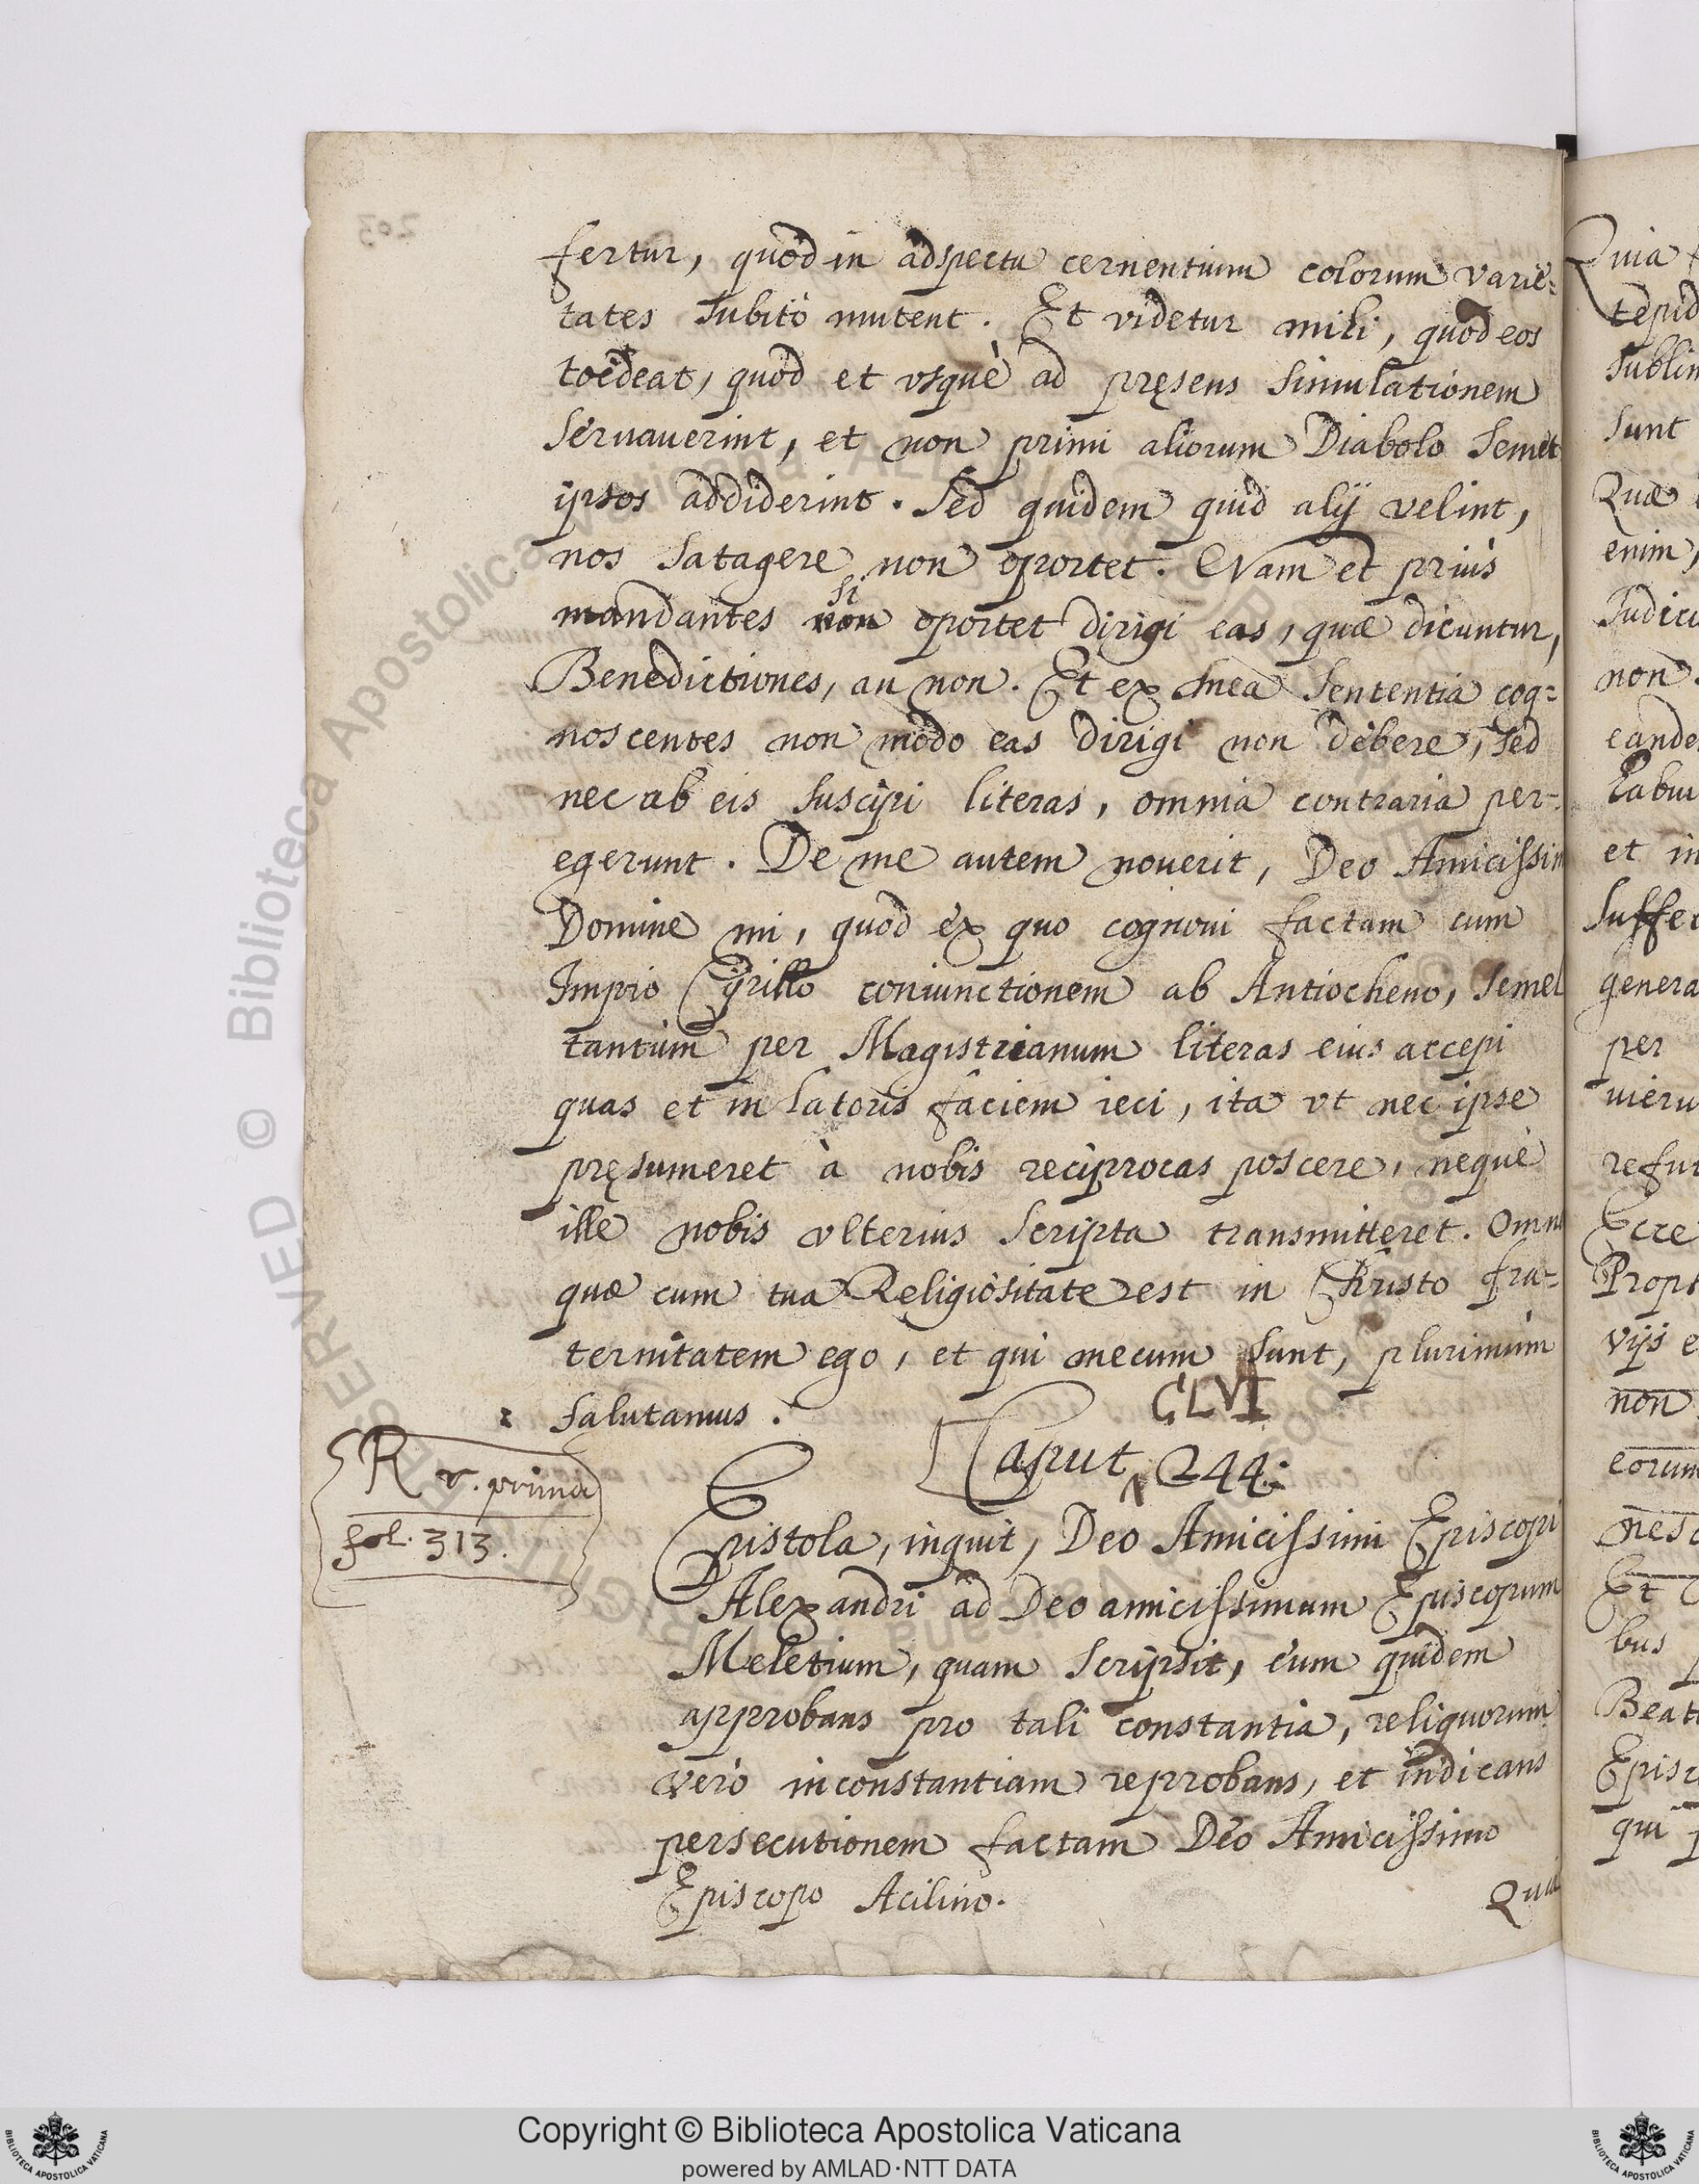 fertur, quod in adspectu cernentium colorum varie=
tates subitò mutent. Et videtur mihi, quod eos
toedeat, quod et vsquè ad pręsens simulationem
seruauerint, et non primi aliorum Diabolo semet
ipsos addiderint. Sed quidem quid alÿ velint,
nos satagere non oportet. Nam et priùs
si
mandantes non oportet dirigi eas, quæ dicuntur,
Benedictiones, an non. Et ex mea sententia cog=
noscentes non modo eas dirigi non debere, sed
nec ab eis suscipi literas, omnia contraria per=
egerunt. De me autem nouerit, Deo Amicissim
Domine mi, quod ex quo cognoui factam cum
Impio Cyrillo coniunctionem ab Antiocheno, semel
tantùm per Magistrianum literas eius accepi
quas et in latoris faciem ieci, ita vt nec ipse
pręsumeret à nobis reciprocas poscere, nequè
ille nobis vlterius scripta transmitteret. Omn
quæ cum tua Religiositate est in Christo fra=
ternitatem ego, et qui mecum sunt, plurimùm
salutamus.
CLVI
Caput 244.
R v. prima
fol. 313.
Epistola, inquit, Deo Amicissimi Episcopi
Alexandri ad Deo amicissimum Episcopum
Meletium, quam scripsit, eum quidem
approbans pro tali constantia, reliquorum
verò inconstantiam reprobans, et indicans
persecutionem factam Deo Amicissimo
Episcopo Acilino.
Qua
203
Quia
tepid
sublim
sunt
Quæ
enim,
Iudici
non.
eande
habui
et in
suffe
genera
per
uieru
refu
Ecce
Propt
vijs e
non
eorum
nes
Et
bus
Beat
Episc
qui
© Biblioteca Apostolica Vaticana
Copyright © Biblioteca Apostolica Vaticana
powered by AMLAD·NTT DATA
BIBLIOTECA APOSTOLICA VATICANA
BIBLIOTECA APOSTOLICA VATICANA